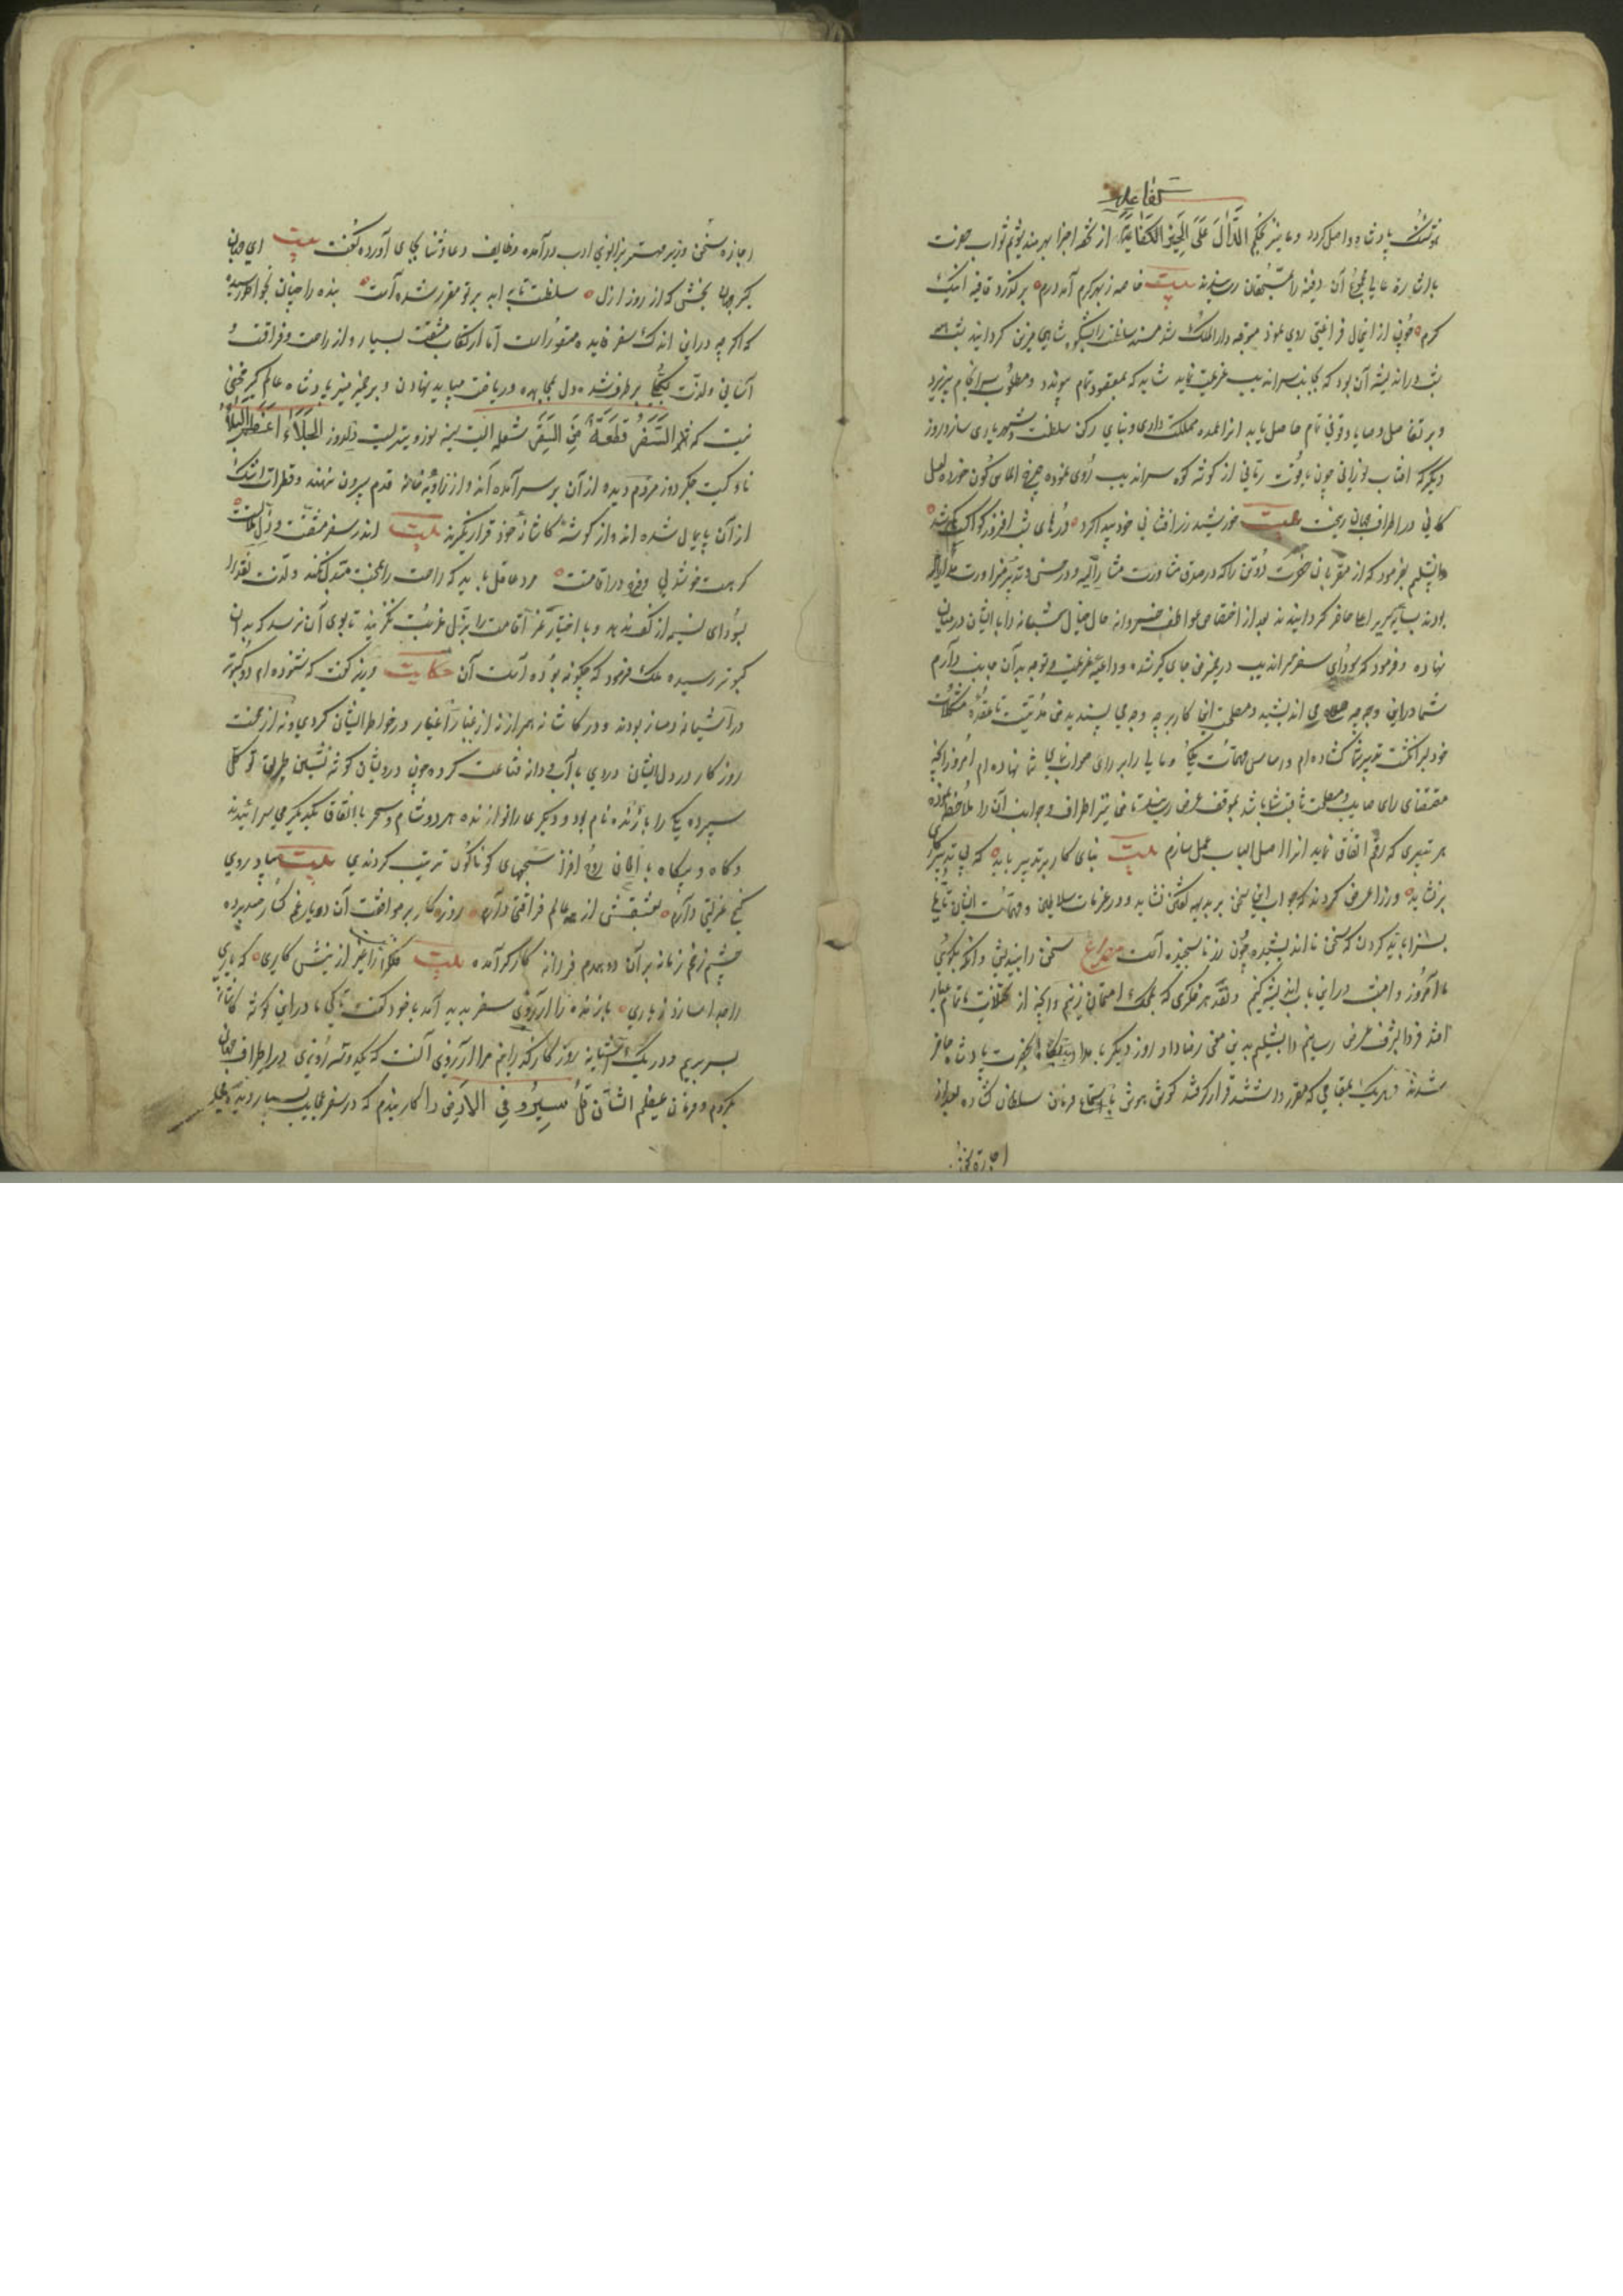 کفاعله
بوشنک پادشاه واصل کردد و ما نیز بحکم الدّالّ علی الخیر کفاعله از نخه اجزا بهره مند شویم ثواب صورت
باشارة عالی مجموع آن دفینه را بمستحقان رسانیدند بیت خاصه ز بهر کرم آمد درم بر کذر و قافیه اینک
کرم چون از اینحال فراغتی روی نمود متوجه دار الملک شد مسند سلطنت را بشکوه شاهی مزین کردانید شب همه
شب در اندیشه آن بود که بجانب سراندیب عزیمت نماید شاید که مقصود تمام پیوندد و مطلوب سرانجام پذیرد
و بر تفاصیل وصایا وقوفی تمام حاصل آید انرا عمده مملکت داری و بنای رکن سلطنت و شهریاری سازد روز
دیکر که افتاب نورانی چون یاقوت رمانی از کوشه کوه سراندیب روی نموده چرخ الماس کون خورده لعل
کانی در اطراف جهان ریخت بیت خورشید زرافشانی خود پیدا کرد درهای شب افروز کواکب کم شد
دابشلیم بفرمود که از مقربان حضرت دو تن را که در صدق مشاورت مشار الیه و در حسن تدبیر
بودند بپایه سریر اعلا حاضر کردانیدند بعد از اختصاص عواطف خسروانه حال خیال شبانه را با ایشان درمیان
نهاده و فرمود که سودای سفر سراندیب در ضمیر من جای کیر شده و داعیه عزیمت و توجه بدان جانب دارم
شما در این وجه چه می اندیشید و مصلحت این کار بر چه وجه می پسندید من مدتیست تا عقده مشکلات
خود بر انکشت تدبیر شما کشاده ام و اساس مهمات ملکی و مالی را بر رای صواب نمای شما نهاده ام امروز انچه
مقتضای رای صایب و مصلحت ثاقب شما باشد بموقف عرض رسانید تا من نیز اطراف و جوانب آن را ملاحظه نموده
هر تدبیری که رقم اتفاق یابد انرا اصل الباب عمل سازم بیت بنای کار بر تدبیر باید که بی تدبیر کاری
بر نشاید وزرا عرض کردند که جواب این سخن بر بدیهه کفتن نشاید و در عزیمات سلاطین و مهمات ایشان تأمل
بسزا باید کردن که سخن نا اندیشیده چون زر ناسنجیده است مصراع سخن را بیندیش وانکه بکوی
ما امروز و امشب در این باب اندیشه کنیم و نقد هر فکری که بمحک امتحان زنیم وانچه از تکلفات تمام عیار
افتد فردا بشرف عرض رسانیم دابشلیم بدین معنی رضا داد روز دیکر بامداد پکاه بحضرت پادشاه حاضر
شدند و هر یک بمقامی که مقرر داشتند قرار کرفتند کوش هوش باستماع فرمان سلطان کشاده بعد از
اجازه سخن
اجازه سخن وزیر مهتر بزانوی ادب درآمده وظایف دعا و ثنا بجای آورده کفت بیت ای جهان
کیر جهان بخشی که از روز ازل سلطنت تا ابد بر تو مقرر شده است بنده را چنان بخواطر رسیده
که اکرچه در این اندک سفر فایده متصوراست اما ارتکاب مشقت بسیار و از راحت و فراغت
آسانی و لذت بکلی برطرف شده دل بمجاهده و ریاضت میباید نهادن و بر ضمیر منیر پادشاه عالم کیر مخفی
نیست که السّفر قطعة من السّقر شعله ایست سینه سوز و تیریست دلدوز الجلاء اعظم البلاء
ناوکیست جکر دوز مردم دیده از آن بر سر آمده اند و از زاویه خانه قدم بیرون ننهند و قطرات اشک
از آن پایمال شده اند که از کوشه کاشانه خود قرار نکیرند بیت اندر سفر مشقت و ذل ملالت
کر هست خوشدلی و فرح در اقامت مرد عاقل باید که راحت را بمحنت متبدل نکند و لذت نقد را
بسودای نسیه از کف ندهد و باختیار عز اقامت را بر ذل غربت نکزیند تا بوی آن نرسد که بدان
کبوتر رسیده ملک فرمود که چکونه بوده است آن حکایت وزیر کفت که شنوده ام دو کبوتر
در آشیانه دمساز بودند و در کاشانه همراز نه از غبار اغیار در خواطر ایشان کردی و نه از محنت
روزکار در دل ایشان دردی با آب و دانه قناعت کرده چون درویشان کوشه نشین طریق توکل
سپرده یکی را بازنده نام بود و دیکری را نوازنده هر دو شام و سحر باتفاق یکدیکر می سرائیدند
و کاه و بیکاه بالحان روح افزا سجعهای کوناکون ترتیب کردندی بیت بیاد روی
کنج عزلتی داریم بعشقش از همه عالم فراغتی داریم روزکار بر موافقت آن دو یار غمکسار حسد برده
چشم زخم زمانه بر آن دو همدم فرزانه کارکر آمده بیت فلک را جز از نیش کاری که یاری
را جدا سازد ز یاری بازنده را آرزوی سفر پدید آمد با خود کفت تا کی ما در این کوشه کاشانه
بسر بریم و در یک آشیانه روزکار کذرانیم مرا آرزوی آنست که یکدوسه روزی در اطراف جهان
بکردم و فرمان عظیم الشان قل سیروا فی الارض را کار بندم که در سفر عجایب بسیار دیده میشود